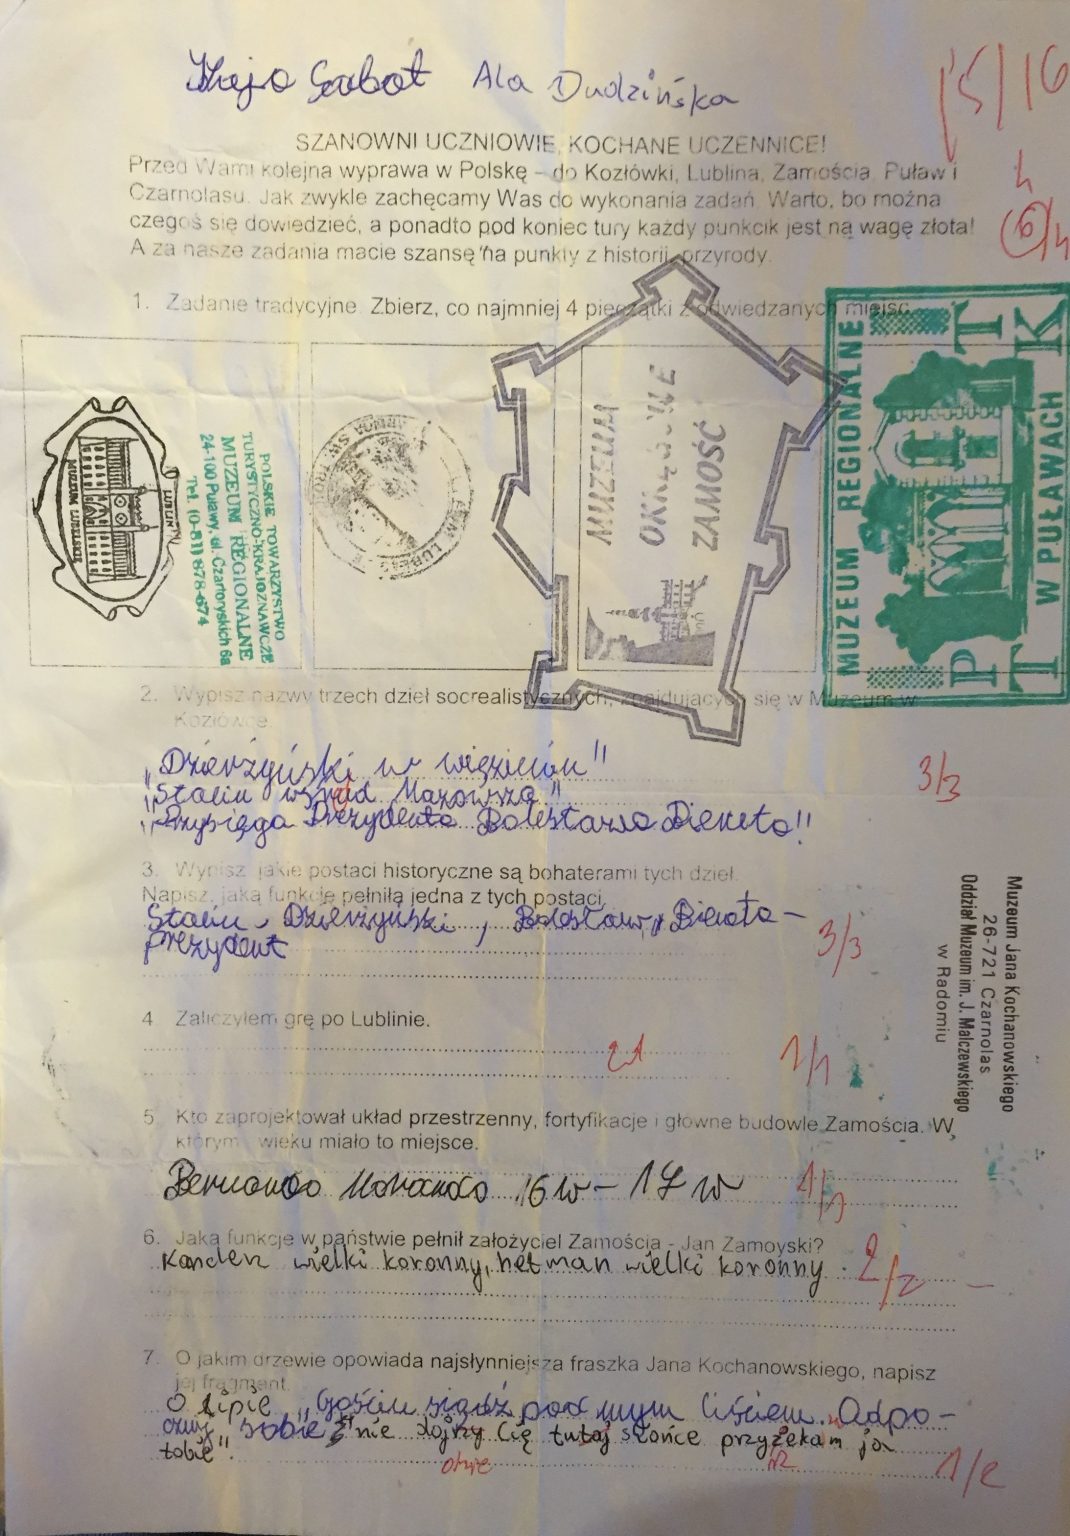 Ala Dudzińska
15/16
SZANOWNI UCZNIOWIE, KOCHANE UCZENNICE!
Przed Wami kolejna wyprawa w Polskę – do Kozłówki, Lublina, Zamościa, Puław i
Czarnolasu. Jak zwykle zachęcamy Was do wykonania zadań. Warto, bo można
czegoś się dowiedzieć, a ponadto pod koniec tury każdy punkcik jest na wagę złota!
A za nasze zadania macie szansę na punkty z historii, przyrody.
1. Zadanie tradycyjne. Zbierz, co najmniej 4 pieczątki z odwiedzanych miejsc.
LUBLIN
MUZEUM LUBELSKIE
POLSKIE TOWARZYSTWO
TURYSTYCZNO-KRAJOZNAWCZE
MUZEUM REGIONALNE
24-100 Puławy ul. Czartoryskich 6a
Tel. (0-81) 878-674
MUZEUM
OKRĘGOWE
ZAMOŚĆ
MUZEUM REGIONALNE
PTTK
W PUŁAWACH
2. Wypisz nazwy trzech dzieł socrealistycznych, znajdujących się w Muzeum w
Kozłówce.
„Dzierżyński w więzieniu"
„Stalin wśród Mazowsza"
„Przysięga Prezydenta Bolesława Bieruta"
3/3
3. Wypisz, jakie postaci historyczne są bohaterami tych dzieł.
Napisz, jaką funkcję pełniła jedna z tych postaci.
Stalin, Dzierżyński, Bolesław Bieruta –
prezydent
3/3
Muzeum Jana Kochanowskiego
26-721 Czarnolas
Oddział Muzeum im. J. Malczewskiego
w Radomiu
4 Zaliczyłem grę po Lublinie.
1/1
5. Kto zaprojektował układ przestrzenny, fortyfikacje i główne budowle Zamościa. W
którym wieku miało to miejsce.
Bernando Morando 16 w – 17 w
1/1
6. Jaką funkcję w państwie pełnił założyciel Zamościa - Jan Zamoyski?
Kanclerz wielki koronny, hetman wielki koronny.
2/2
7. O jakim drzewie opowiada najsłynniejsza fraszka Jana Kochanowskiego, napisz
jej fragment.
O lipie „Gościu siądź pod mym liściem. Odpo-
cznij sobie nie dojrzy Cię tutaj słońce przyżekam ja
tobie".
1/2